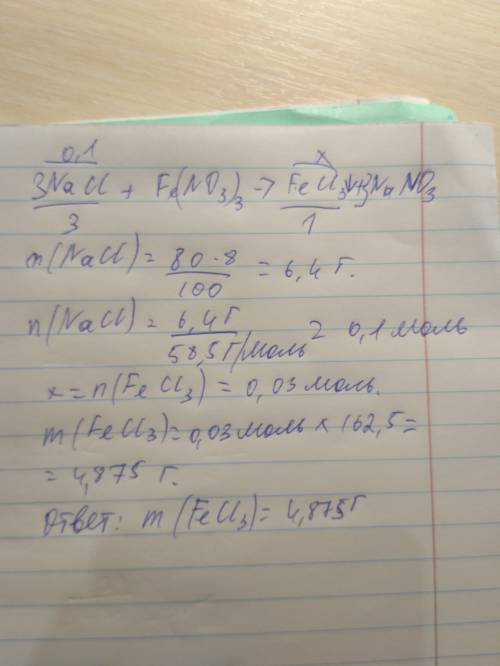 0,1 x
3NaCl + Fe(NO3)3 → FeCl3↓+3NaNO3
3 1
m(NaCl) = 80·8/100 = 6,4 г.
n(NaCl) = 6,4г/58,5г/моль = 0,1 моль
x = n(FeCl3) = 0,03 моль.
m(FeCl3) = 0,03 моль × 162,5 =
= 4,875 г.
Ответ: m(FeCl3) = 4,875г